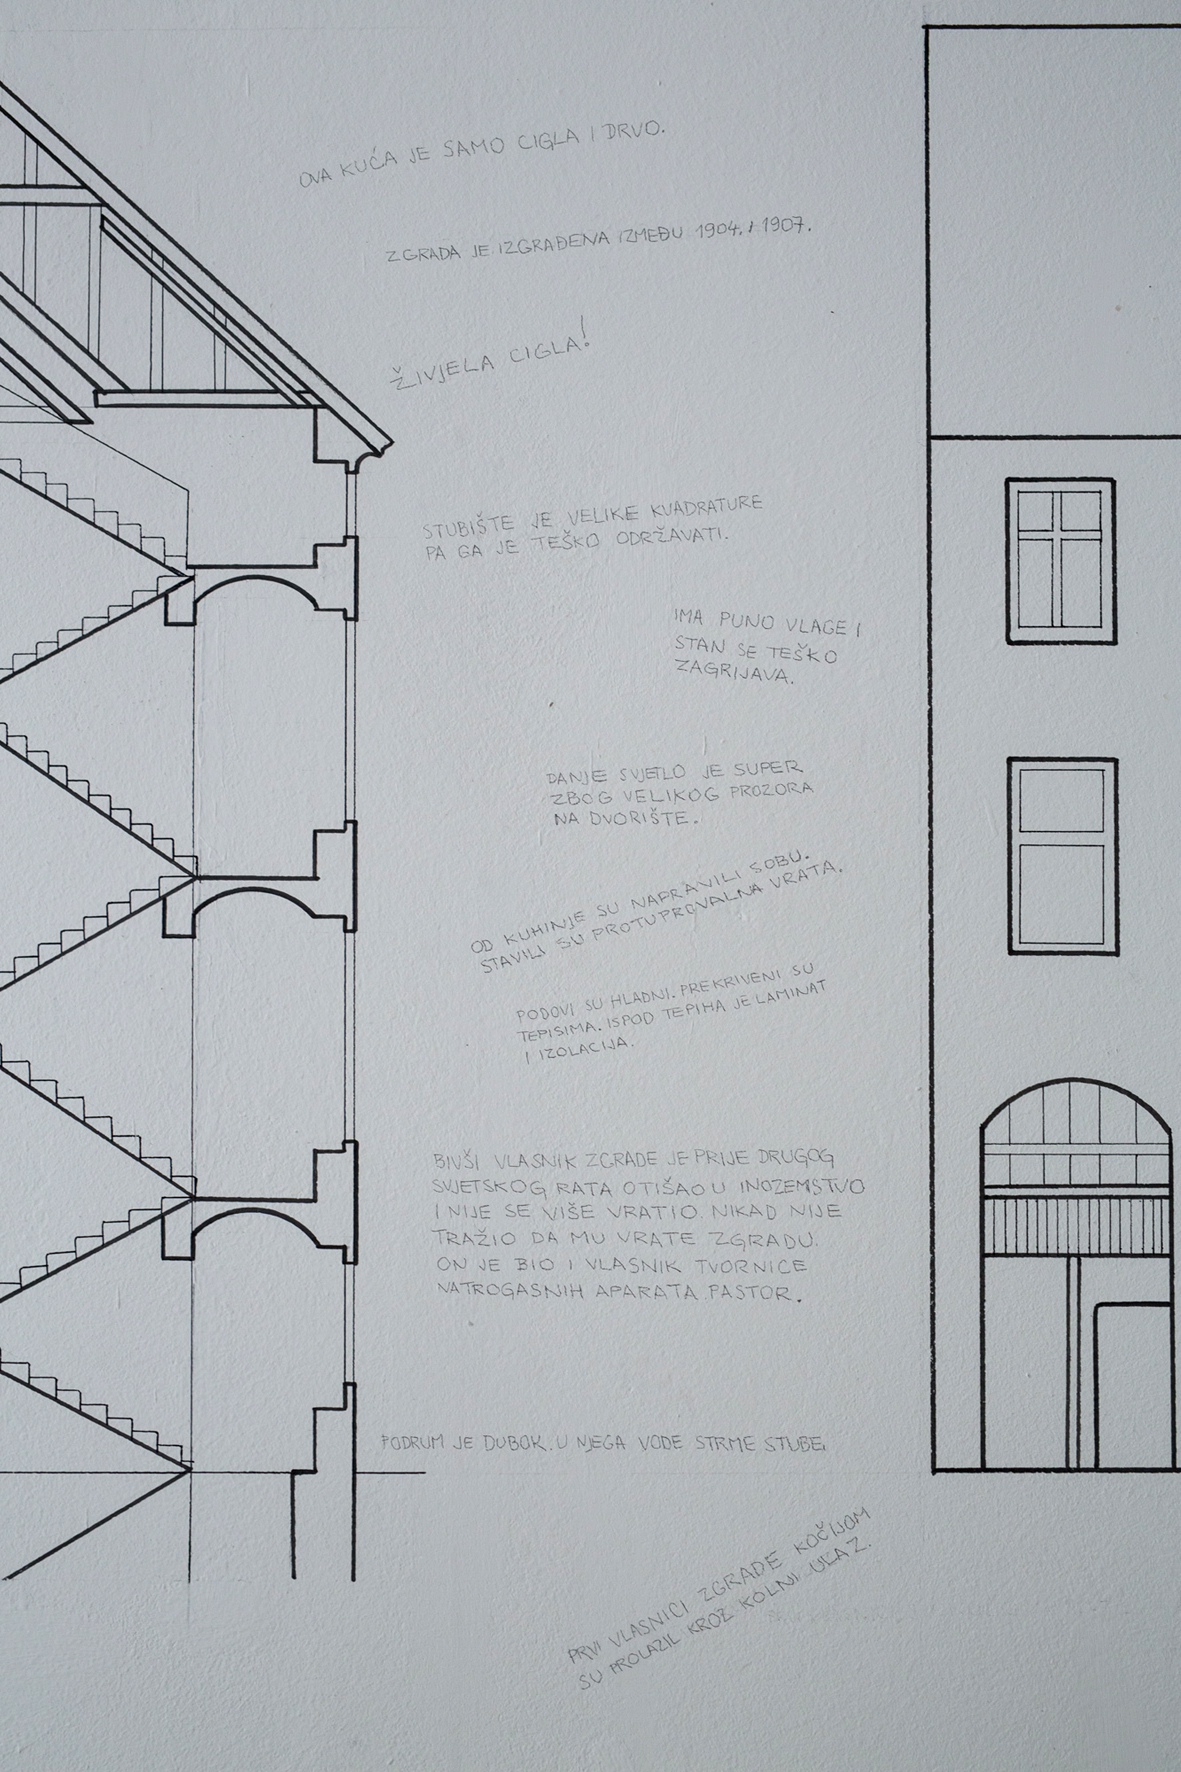 OVA KUĆA JE SAMO CIGLA I DRVO.
ZGRADA JE IZGRAĐENA IZMEĐU 1904. I 1907.
ŽIVJELA CIGLA!
STUBIŠTE JE VELIKE KVADRATURE
PA GA JE TEŠKO ODRŽAVATI.
IMA PUNO VLAGE I
STAN SE TEŠKO
ZAGRIJAVA.
DANJE SVJETLO JE SUPER
ZBOG VELIKOG PROZORA
NA DVORIŠTE.
OD KUHINJE SU NAPRAVILI SOBU.
STAVILI SU PROTUPROVALNA VRATA.
PODOVI SU HLADNI. PREKRIVENI SU
TEPISIMA. ISPOD TEPIHA JE LAMINAT
I IZOLACIJA.
BIVŠI VLASNIK ZGRADE JE PRIJE DRUGOG
SVJETSKOG RATA OTIŠAO U INOZEMSTVO
I NIJE SE VIŠE VRATIO. NIKAD NIJE
TRAŽIO DA MU VRATE ZGRADU.
ON JE BIO I VLASNIK TVORNICE
VATROGASNIH APARATA PASTOR.
PODRUM JE DUBOK. U NJEGA VODE STRME STUBE.
PRVI VLASNICI ZGRADE KOČIJOM
SU PROLAZIL KROZ KOLNI ULAZ.